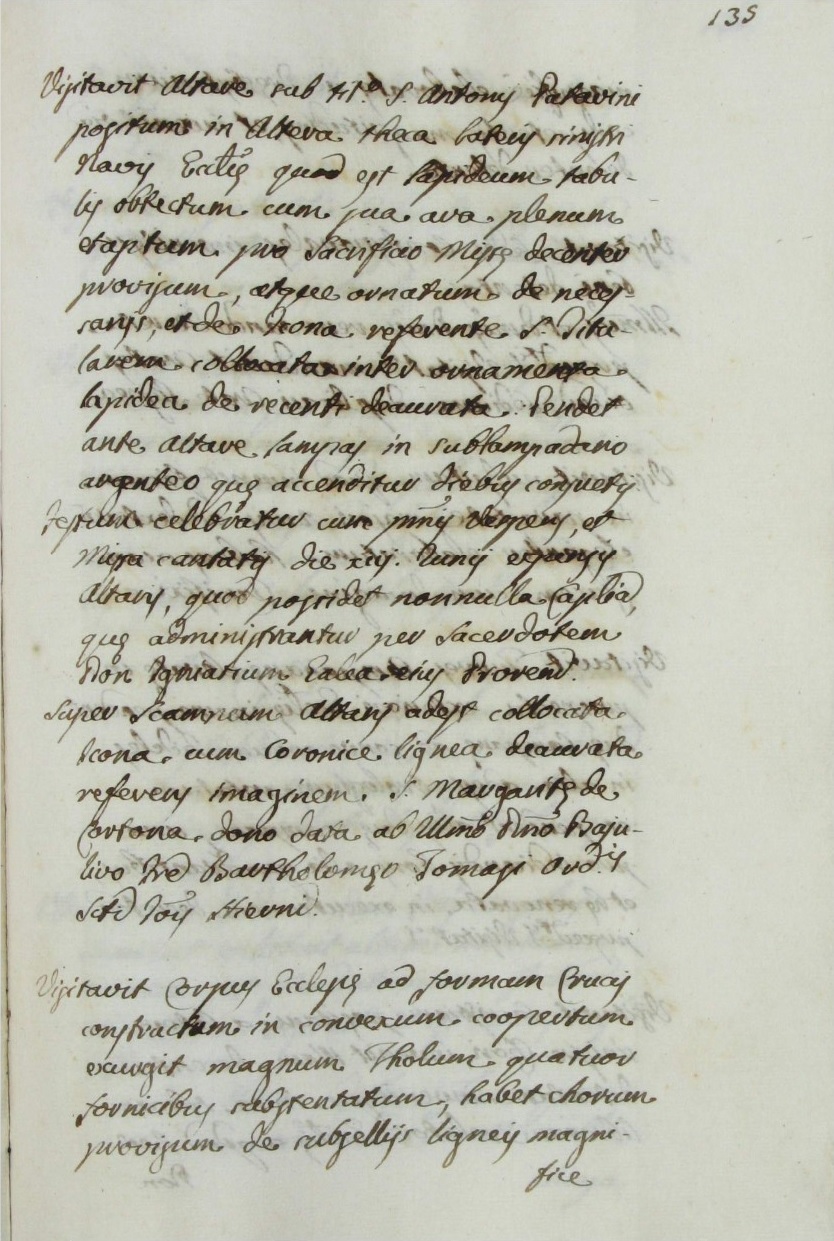 135
Visitavit Altare sub tit.o S. Antonij Patavini
positum in Altera theca lateris sinistri
Navis Eccliȩ quod est lapideum tabu-
lis obtectum cum sua ara plenum
et aptum pro Sacrificio Missȩ decenter
provisum, atque ornatum de neces-
sarijs, et de Icona referente S. Titu-
larem collocata inter ornamenta
lapidea de recenti deaurata. Pendet
ante Altare lampas in sublampadario
argenteo quȩ accenditur diebus consuetis
Festum celebratur cum primis Vesperis, et
Missa cantatis die xiij. Junij expensis
Altaris, quod possidet nonnulla Capliā,
quȩ administrantur per Sacerdotem
Don Ignatium Galea eius Provend.
Super Scamnum Altaris adest collocata
Icona cum Coronice lignea deaurata
referens imaginem S. Margaritȩ de
Cortona dono data ab Illmō Dnō Baju-
livo Fre Bartholomȩo Tomasi Ord.is
Scti Jois Hierni.
Visitavit Corpus Ecclesiȩ ad formam Crucis
constructum in convexum coopertum
exurgit magnum Tholum quatuor
fornicibus substentatum, habet chorum
provisum de subsellijs ligneis magni-
fice